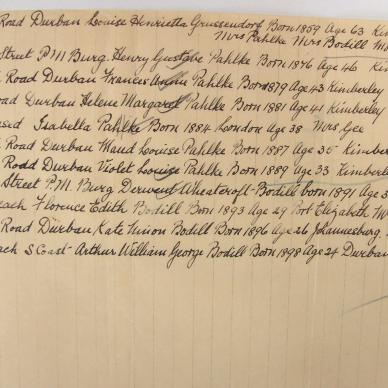 Road Durban Louise Henrietta Grussendorf Born 1859 Age 63 Kim
Mrs Pahlke Mrs Bodill Mo
Street P.M Burg. Henry Gustave Pahlke Born 1876 Age 46 Kim
Road Durban Frances Pahlke Born 1879 Age 43 Kimberley
oad Durban Helene Margaret Pahlke Born 1881 Age 41 Kimberley
ased Isabella Pahlke Born 1884 London Age 38 Mrs Gee
Road Durban Maud Louise Pahlke Born 1887 Age 35 Kimberle
Road Durban Violet Louise Pahlke Born 1889 Age 33 Kimberle
Street P.M. Burg Derwent Wheatcroft Bodill born 1891 Age 3
each Florence Edith Bodill Born 1893 Age 29 Port Elizabeth M
Road Durban Kate Bodill Born 1896 Age 26 Johannesburg
each S Coast Arthur William George Bodill Born 1898 Age 24 Durban